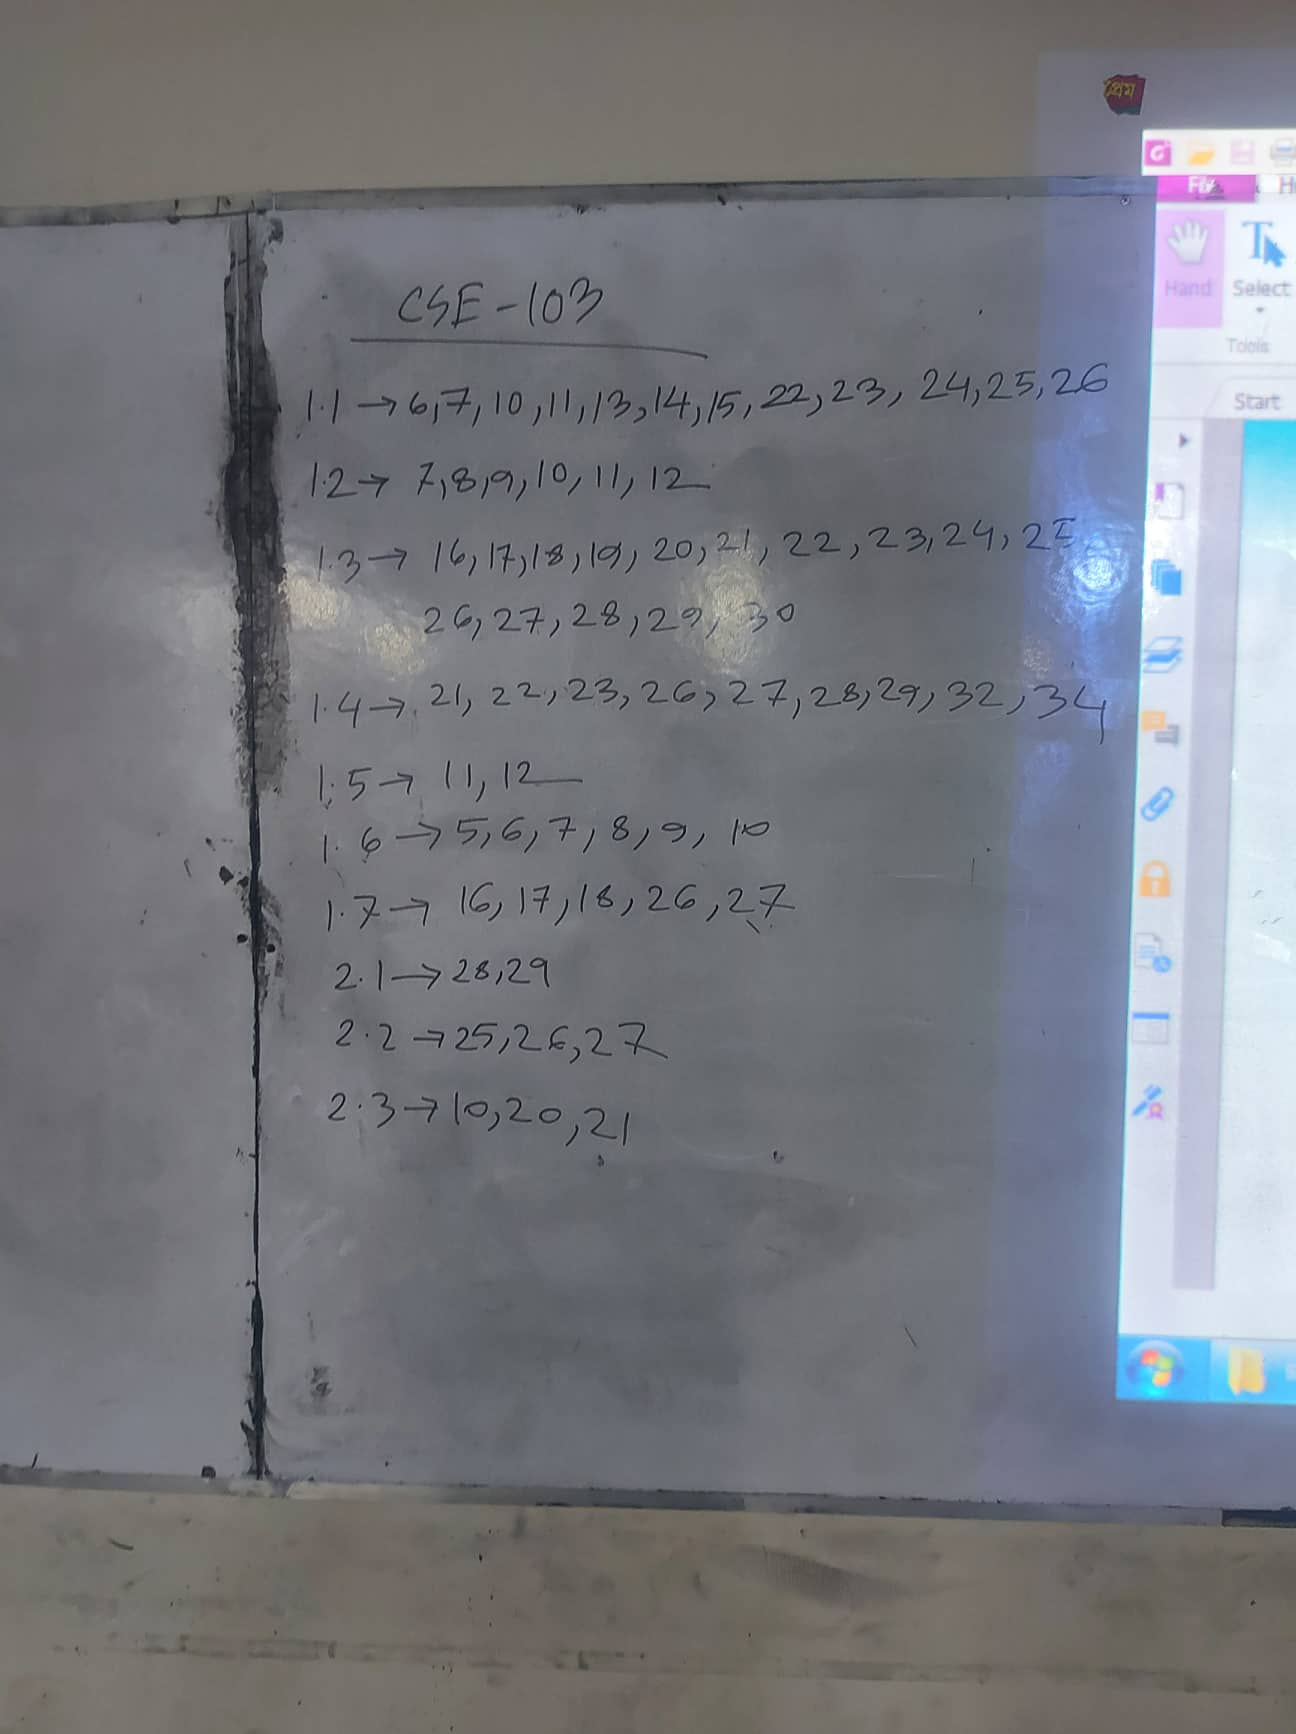 প্রেম
CSE-103
1.1 → 6,7,10,11,13,14,15,22,23, 24,25,26
1.2 → 7,8,9,10,11,12
1.3 → 16,17,18,19,20,21,22,23,24,25
26,27,28,29,30
1.4 → 21,22,23,26,27,28,29,32,34
1.5 → 11,12
1.6 → 5,6,7,8,9,10
1.7 → 16,17,18,26,27
2.1 → 28,29
2.2 → 25,26,27
2.3 → 10,20,21
Hand
Select
Tools
Start